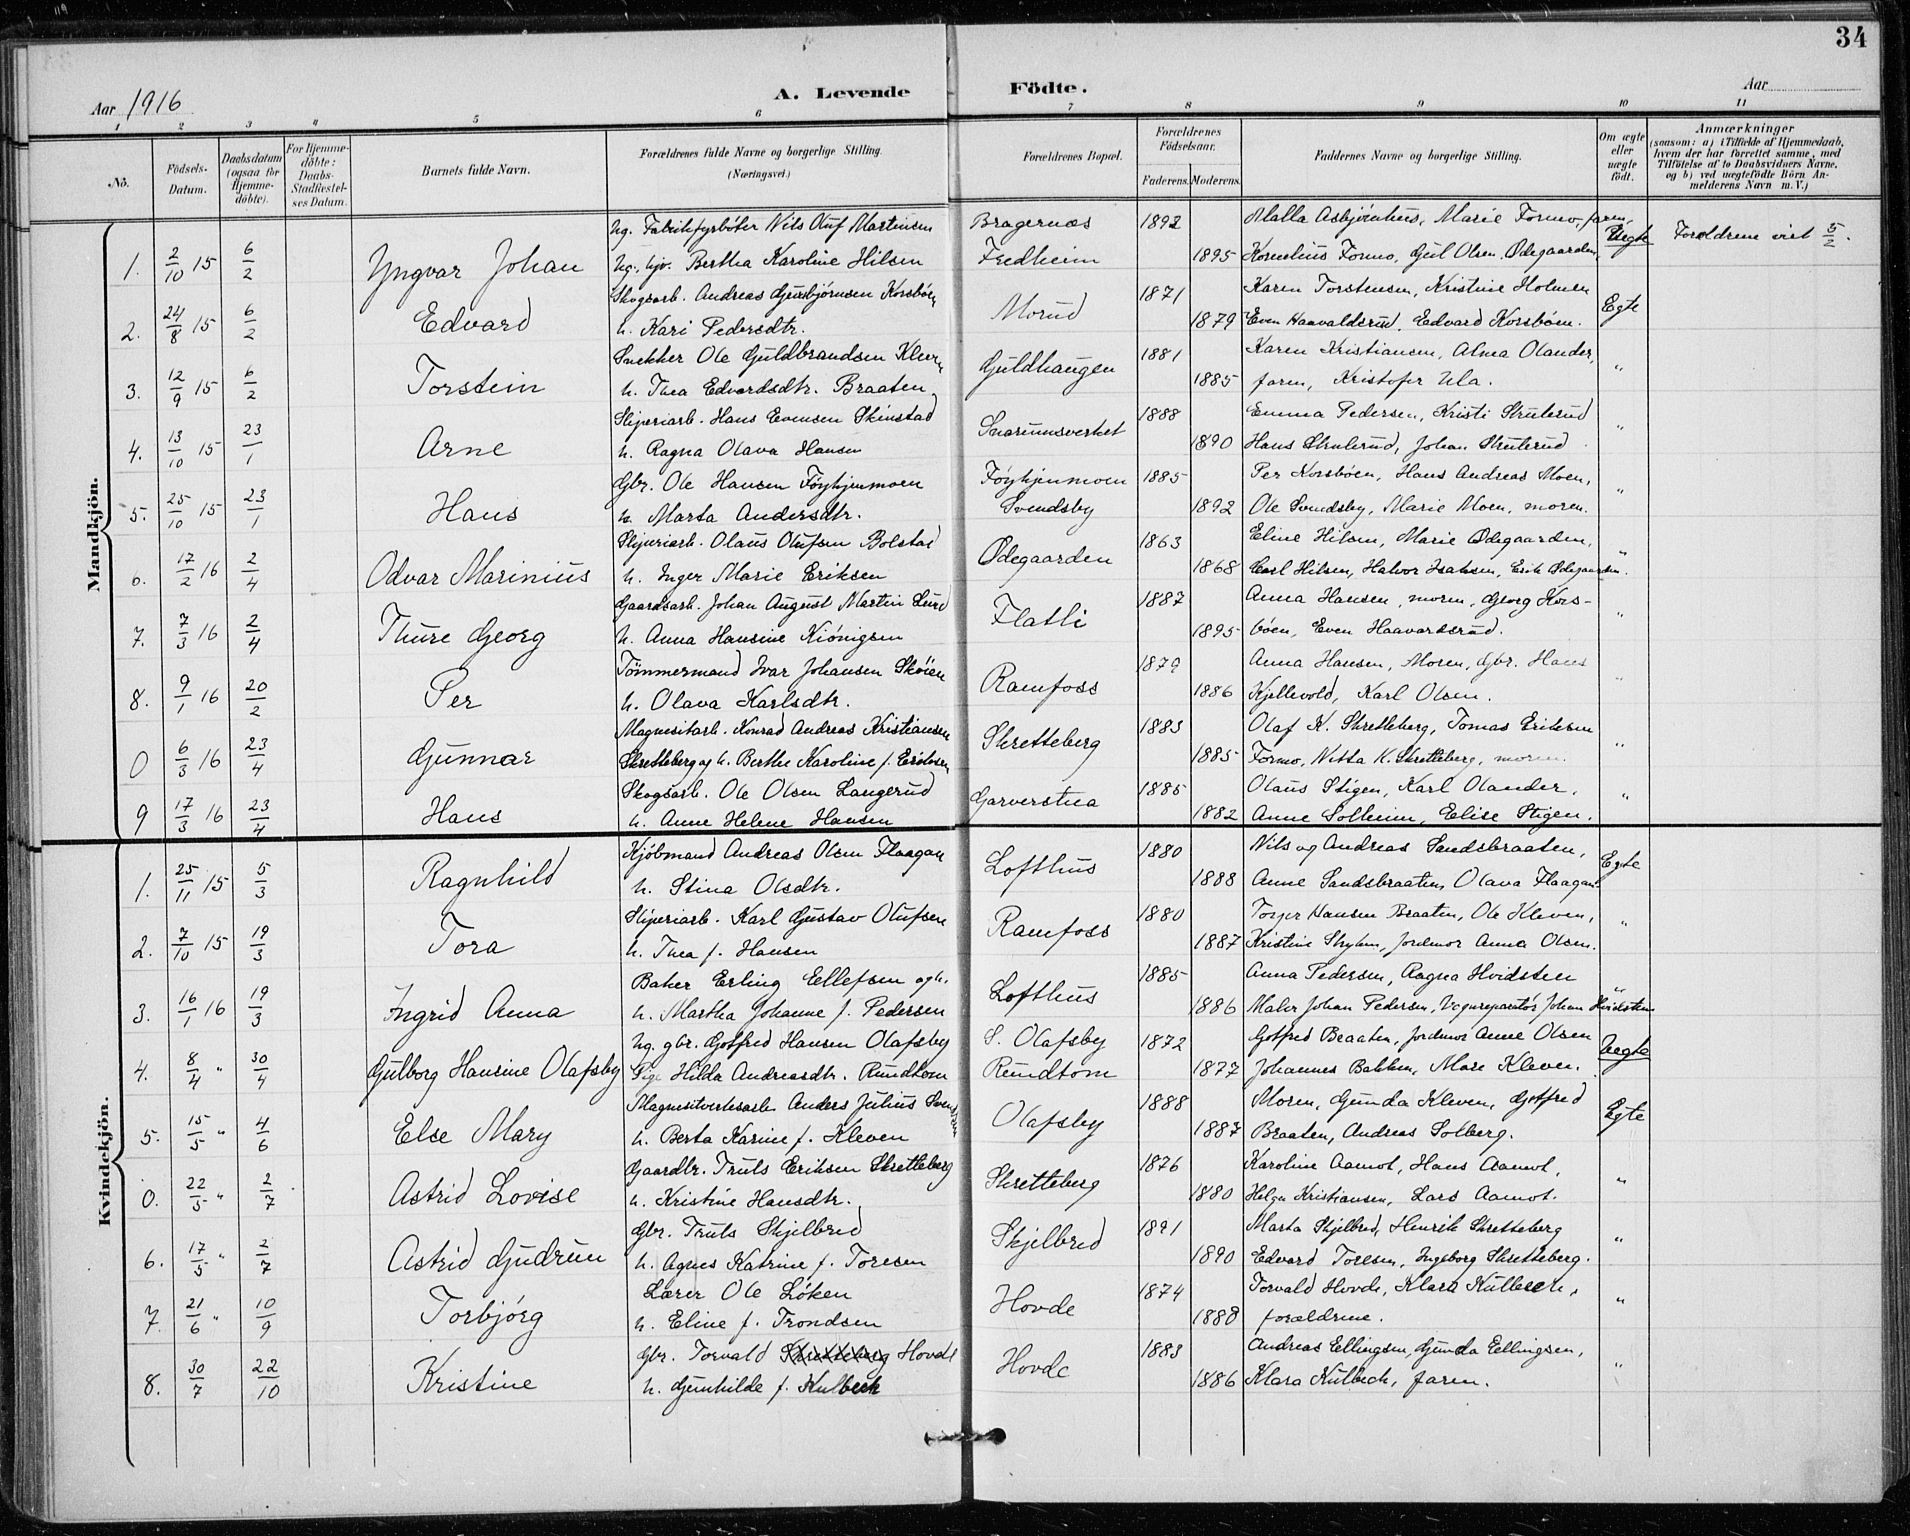 34
Aar 1916
A. Levende Födte.
Aar
1 2 3 4 5 6 7 8 9 10 11
No.
Födsels-Datum.
Daabsdatum (ogsaa for Hjemme-döbte).
For Hjemme-döbte: Daabs-Stadfæstel-ses Datum.
Barnets fulde Navn.
Forældrenes fulde Navne og borgerlige Stilling. (Næringsvei.)
Forældrenes Bopæl.
Forældrenes Födselsaar.
Faderens. Moderens.
Faddernes Navne og borgerlige Stilling.
Om ægte eller uægte födt.
Anmærkninger
(saasom: a) i Tilfælde af Hjemmedaab, hvem der har forrettet samme, med Tilföielse af to Daabsvidners Navne, og b) ved uægtefödte Börn An-melderens Navn m. V.)
Mandkjön.
Ug. Fabrikfyrbøter Nils Oluf Martinsen Bragernæs 1892 Malla Asbjörnhus, Marie Formo, faren,
1. 2/10 15 6/2 Yngvar Johan Ug. hjv. Bertha Karoline Hilsen Fredheim 1895 Kornelius Formo, Gul Olsen Ødegaarden, Uegte Foreldrene viet 5/2.
Skogsarb. Andreas Gunbjørnsen Korsbøen 1871 Karen Torstensen, Kristine Holmen
2. 24/8 15 6/2 Edvard h. Kari Pedersdtr. Morud 1879 Even Haavaldsrud, Edvard Korsbøen. Egte
Snekker Ole Guldbrandsen Kleven 1881 Karen Kristiansen, Alma Olander,
3. 12/9 15 6/2 Torstein h. Thea Edvardsdtr. Braaten Guldhaugen 1885 faren, Kristofer Ula. "
Sliperiarb. Hans Evensen Skinstad 1888 Emma Pedersen, Kristi Skuterud
4. 13/10 15 23/1 Arne h. Ragna Olava Hansen Snarumsverket 1890 Hans Skuterud, Johan Skuterud. "
Gbr. Ole Hansen Føyhjenmoen Føyhjenmoen 1885 Per Korsbøen, Hans Andreas Moen,
5. 25/10 15 23/1 Hans h. Marta Andersdtr. Svendsby 1892 Ole Svendsby, Marie Moen, moren. "
Sliperiarb. Olaus Olufsen Bolstad 1863 Eline Hilsen, Marie Ødegaarden,
6. 17/2 16 2/4 Odvar Marinius h. Inger Marie Eriksen Ødegaarden 1868 Carl Hilsen, Halvor Isaksen, Erik Ødegaarden. "
Gaardsarb. Johan August Martin Lund 1887 Anna Hansen, moren, Georg Kors-
7. 7/3 16 2/4 Thure Georg h. Anna Hansine Kiönigsen Flatli 1895 bøen, Even Haavardsrud. "
Tömmermand Ivar Johansen Skøien 1879 Anna Hansen, Moren, Gbr. Hans
8. 9/1 16 20/2 Per h. Olava Karlsdtr. Ramfoss 1886 Kjellevold, Karl Olsen. "
Magnesitarb. Konrad Andreas Kristiansen 1883 Olaf K. Skretteberg, Tomas Eriksen
0 6/3 16 23/4 Gunnar Skretteberg og h. Berthe Karoline f. Eriksen Skretteberg 1885 Formo, Nitta K. Skretteberg, moren. "
Skogsarb. Ole Olsen Langerud 1885 Olaus Stigen, Karl Olander,
9 17/3 16 23/4 Hans h. Anne Helene Hansen Garverstua 1882 Anne Solheim, Elise Stigen. "
Kvindekjön.
Kjöbmand Andreas Olsen Flaagan 1880 Nils og Andreas Sandsbraaten,
1. 25/11 15 5/3 Ragnhild h. Stina Olsdtr. Lofthus 1888 Anne Sandsbraaten, Olava Flaagan. Egte
Sliperiarb. Karl Gustav Olufsen 1880 Torger Hansen Braaten, Ole Kleven,
2. 7/10 15 19/3 Tora h. Thea f. Hansen Ramfoss 1887 Kristine, Jordmor Anna Olsen. "
Baker Erling Ellefsen og h. 1885 Anna Pedersen, Ragna Hvidsten
3. 16/1 16 19/3 Ingrid Anna h. Martha Johanne f. Pedersen Lofthus 1886 Maler Johan Pedersen, Vognreparatør Johan Hvidsten "
Ug. gbr. Gotfred Hansen Olafsby S. Olafsby 1872 Gotfred Braaten, Jordmor Anne Olsen
4. 8/4 " 30/4 Gulborg Hansine Olafsby Pige Hilda Andreasdtr. Rundtom Rundtom 1877 Johannes Bakken, Mare Kleven. Uegte
Magnesitverksarb. Anders Julius Svendsen 1888 Moren, Gunda Kleven, Gotfred
5. 15/5 " 4/6 Else Mary h. Berta Karine f. Kleven Olafsby 1887 Braaten, Andreas Solberg. Egte
Gaardbr. Truls Eriksen Skretteberg 1876 Karoline Aamot, Hans Aamot,
0. 22/5 " 2/7 Astrid Lovise h. Kristine Hansdtr. Skretteberg 1880 Helga Kristiansen, Lars Aamot. "
Gbr. Truls Skjelbred 1891 Marta Skjelbred, Henrik Skretteberg
6. 17/5 " 2/7 Astrid Gudrun h. Agnes Katrine f. Toresen Skjelbred 1890 Edvard Toresen, Ingeborg Skretteberg. "
Lærer Ole Løken 1874 Torvald Hovde, Klara Kulbeck,
7. 21/6 " 10/9 Torbjørg h. Eline f. Trondsen Hovde 1880 forældrene. "
Gbr. Torvald Skretteberg Hovde 1883 Andreas Ellingsen, Gunda Ellingsen,
8. 30/7 22/10 Kristine h. Gunhilde f. Kulbeck Hovde 1886 Klara Kulbeck, faren. "